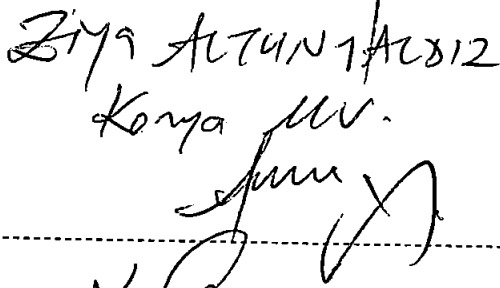 Ziya ALTUNYALDIZ
Konya MV.